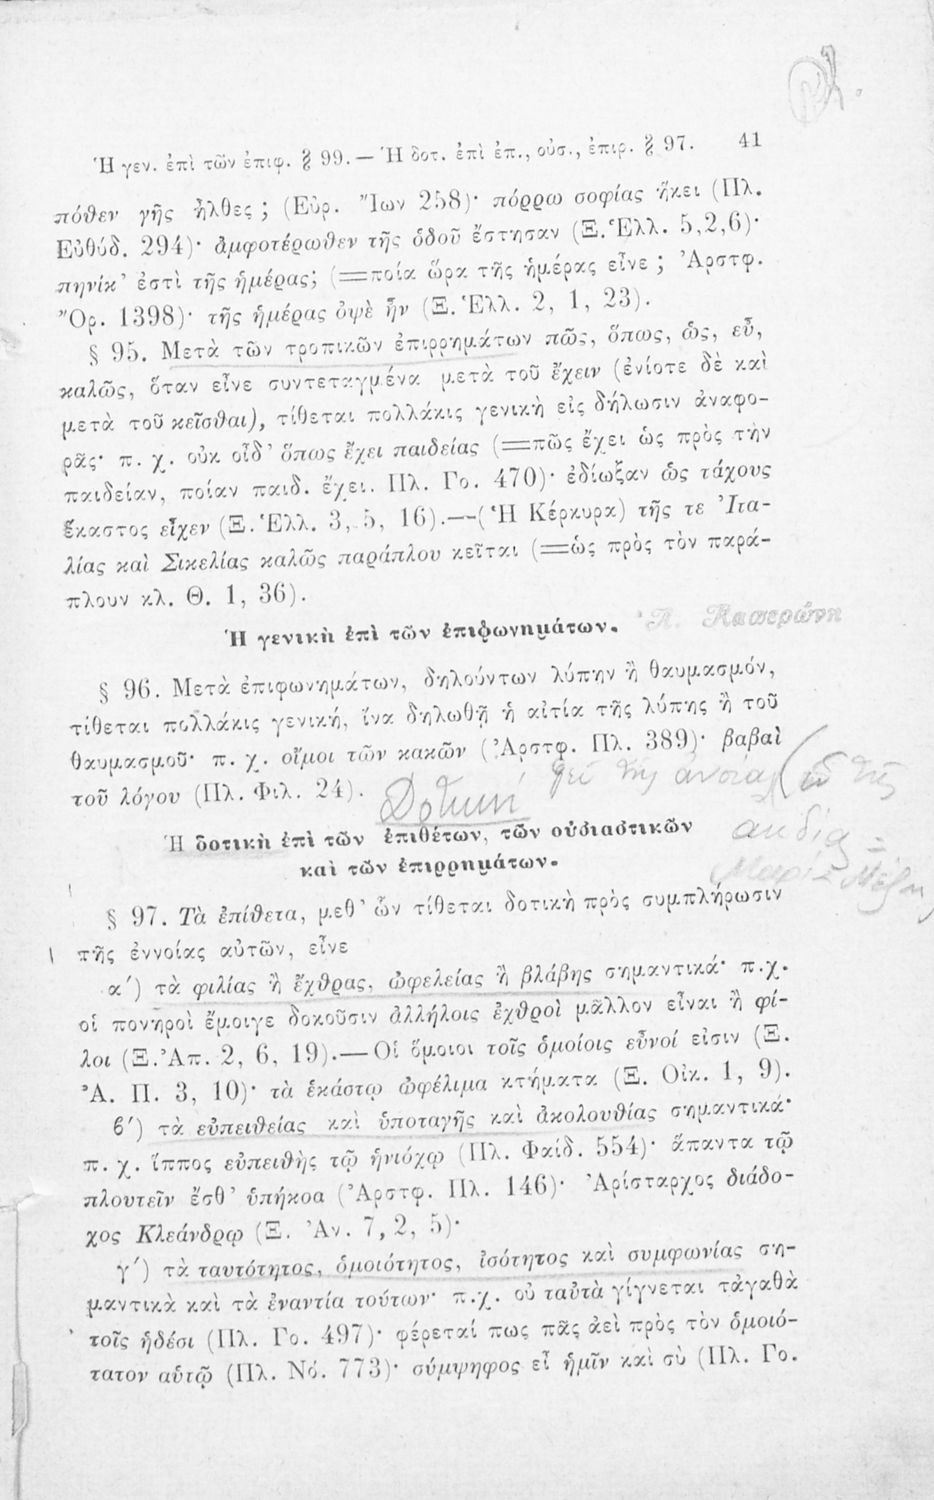 Ἡ γεν. ἐπὶ τῶν ἐπιφ. § 99. — Ἡ δοτ. ἐπὶ ἐπ., οὐσ., ἐπιρ. § 97. 41
πόθεν γῆς ἦλθες ; (Εὐρ. Ἴων 258)· πόρρω σοφίας ἥκει (Πλ.
Εὐθύδ. 294)· ἀμφοτέρωθεν τῆς ὁδοῦ ἔστησαν (Ξ. Ἑλλ. 5,2,6)·
πηνίκ' ἐστὶ τῆς ἡμέρας; (=ποία ὥρα τῆς ἡμέρας εἶνε ; Ἀρστφ.
Ὄρ. 1398)· τῆς ἡμέρας ὀψὲ ἦν (Ξ. Ἑλλ. 2, 1, 23).
§ 95. Μετὰ τῶν τροπικῶν ἐπιρρημάτων πῶς, ὅπως, ὡς, εὖ,
καλῶς, ὅταν εἶνε συντεταγμένα μετὰ τοῦ ἔχειν (ἐνίοτε δὲ καὶ
μετὰ τοῦ κεῖσθαι), τίθεται πολλάκις γενικὴ εἰς δήλωσιν ἀναφο-
ρᾶς· π. χ. οὐκ οἶδ' ὅπως ἔχει παιδείας (=πῶς ἔχει ὡς πρὸς τὴν
παιδείαν, ποίαν παιδ. ἔχει. Πλ. Γο. 470)· ἐδίωξαν ὡς τάχους
ἕκαστος εἶχεν (Ξ. Ἑλλ. 3, 5, 16).—(Ἡ Κέρκυρα) τῆς τε Ἰτα-
λίας καὶ Σικελίας καλῶς παράπλου κεῖται (=ὡς πρὸς τὸν παρά-
πλουν κλ. Θ. 1, 36).
Ἡ γενικὴ ἐπὶ τῶν ἐπιφωνημάτων.
§ 96. Μετὰ ἐπιφωνημάτων, δηλούντων λύπην ἢ θαυμασμόν,
τίθεται πολλάκις γενική, ἵνα δηλωθῇ ἡ αἰτία τῆς λύπης ἢ τοῦ
θαυμασμοῦ· π. χ. οἴμοι τῶν κακῶν (Ἀρστφ. Πλ. 389)· βαβαὶ
τοῦ λόγου (Πλ. Φιλ. 24).
Δοτική
Ἡ δοτικὴ ἐπὶ τῶν ἐπιθέτων, τῶν οὐσιαστικῶν
καὶ τῶν ἐπιρρημάτων.
§ 97. Τὰ ἐπίθετα, μεθ' ὧν τίθεται δοτικὴ πρὸς συμπλήρωσιν
τῆς ἐννοίας αὐτῶν, εἶνε
α') τὰ φιλίας ἢ ἔχθρας, ὠφελείας ἢ βλάβης σημαντικά· π.χ.
οἱ πονηροὶ ἔμοιγε δοκοῦσιν ἀλλήλοις ἐχθροὶ μᾶλλον εἶναι ἢ φί-
λοι (Ξ. Ἀπ. 2, 6, 19).—Οἱ ὅμοιοι τοῖς ὁμοίοις εὖνοί εἰσιν (Ξ.
Ἀ. Π. 3, 10)· τὰ ἑκάστῳ ὠφέλιμα κτήματα (Ξ. Οἰκ. 1, 9).
β') τὰ εὐπειθείας καὶ ὑποταγῆς καὶ ἀκολουθίας σημαντικά·
π. χ. ἵππος εὐπειθὴς τῷ ἡνιόχῳ (Πλ. Φαίδ. 554)· ἅπαντα τῷ
πλουτεῖν ἔσθ' ὑπήκοα (Ἀρστφ. Πλ. 146)· Ἀρίσταρχος διάδο-
χος Κλεάνδρῳ (Ξ. Ἀν. 7, 2, 5)·
γ') τὰ ταυτότητος, ὁμοιότητος, ἰσότητος καὶ συμφωνίας ση-
μαντικὰ καὶ τὰ ἐναντία τούτων· π.χ. οὐ ταὐτὰ γίγνεται τἀγαθὰ
τοῖς ἡδέσι (Πλ. Γο. 497)· φέρεταί πως πᾶς ἀεὶ πρὸς τὸν ὁμοιό-
τατον αὑτῷ (Πλ. Νό. 773)· σύμψηφος εἶ ἡμῖν καὶ σὺ (Πλ. Γο.